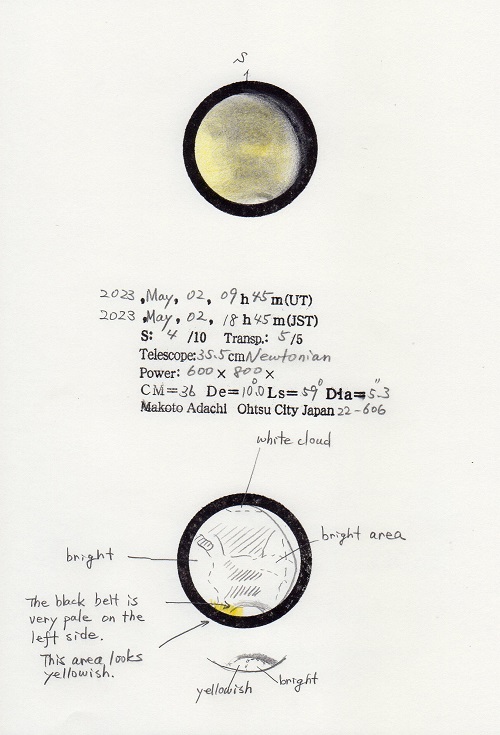 S
2023, May, 02, 09h45m(UT)
2023, May, 02, 18h45m(JST)
S: 4 /10 Transp.: 5/5
Telescope:35.5cm Newtonian
Power: 600× 800×
CM=36 De=10°.0 Ls=59° Dia=5.3"
Makoto Adachi Ohtsu City Japan 22-606
white cloud
bright area
bright
The black belt is
very pale on the
left side.
This area looks
yellowish.
yellowish
bright